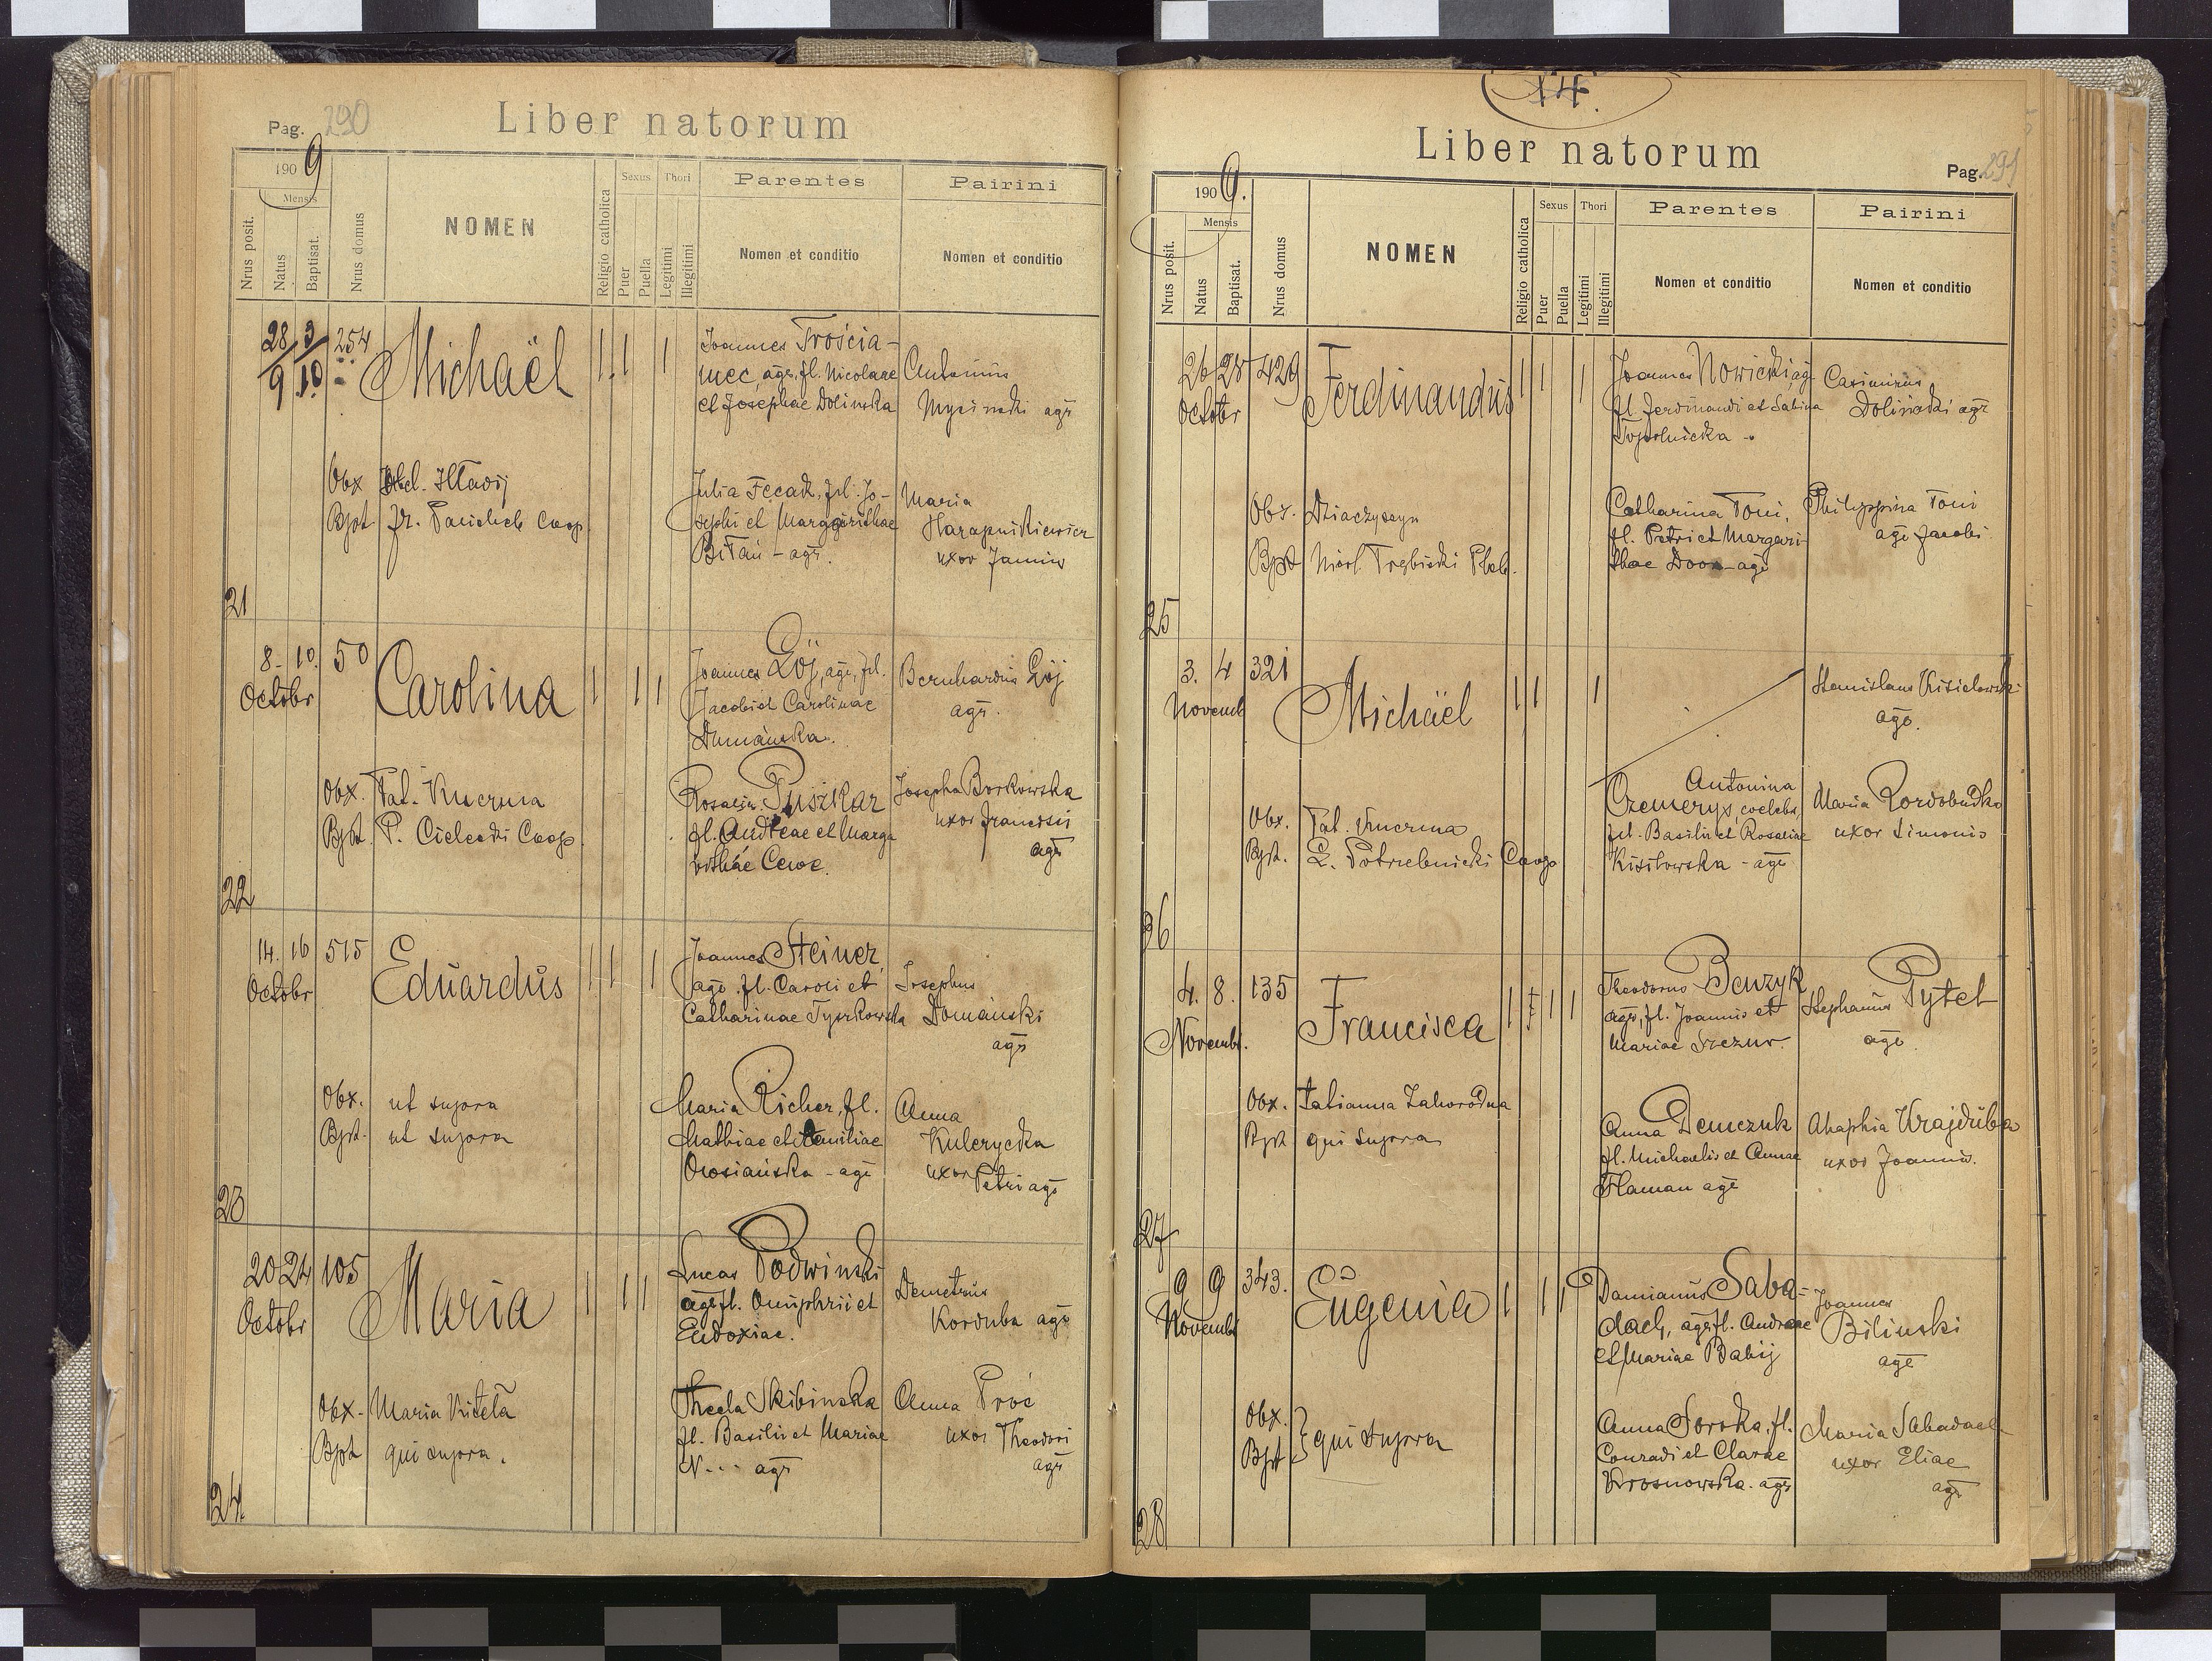 Pag. 290
Liber natorum
1909
Mensis
Nrus posit.
Natus
Baptisat.
Nrus domus
NOMEN
Religio catholica
Sexus
Puer
Puella
Thori
Legitimi
Illegitimi
Parentes
Nomen et conditio
Pairini
Nomen et conditio
21
28/9 3/10 254
Michaël
Joannes Trościa-
niec, agr., fl. Nicolaae
et Josephae Dolinska
Antonius
agr
Obx
Bpt Fr. Coop.
Julia Fecak, fl. Jo-
sephi et Margarithae
Bitań - agr.
Maria
Harapnikiewicz
uxor Joannis
22
8. 10. 50
Octobr
Carolina
Joannes Łój, agr., fl.
Jacobi et Carolinae
Dumańska.
Bernhardus Łój
agr.
Obx. Tat. Kuczma
Bpt. P. Cielecki Coop.
Rosalia Puszkar
fl. Andreae et Marga
rithae Cewe.
Josepha Borkowska
uxor Francisci
agr
23
14. 16 515
Octobr
Eduardus
Joannes Steiner,
agr. fl. Caroli et
Catharinae Tyszkowska
Josephus
Domański
agr
Obx. ut supra
Bpt. ut supra
Maria Richer, fl.
Mathiae et Aemiliae
Orosiańska - agr
Anna
Kulczycka
uxor Petri agr
24.
20 24 105
Octobr
Maria
Lucas Podwinski
agr fl. Onuphrii et
Eudoxiae.
Demetrius
Korduba agr
Obx. Maria Kiteła
Bpt qui supra.
Thecla Skibinska
fl. Basilii et Mariae
N... agr
Anna Proć
uxor Theodori
agr
14.
Liber natorum
Pag. 291
1909.
Mensis
Nrus posit.
Natus
Baptisat.
Nrus domus
NOMEN
Religio catholica
Sexus
Puer
Puella
Thori
Legitimi
Illegitimi
Parentes
Nomen et conditio
Pairini
Nomen et conditio
25
26 28 429
Octobr
Ferdinandus
Joannes Nowicki, agr
fl. Ferdinandi et Sabina
Topolnicka
Casimirus
Doliński agr
Obx.
Bpt Nicol. Trębicki Pleb.
Catharina Toni,
fl. Petri et Margari-
thae - agr
Philippina Toni
agr Jacobi
26
3. 4 321
Novemb
Michäel
Stanislaus Kisielowski
agr.
Obx. Tat. Kuczma
Bpt. L. Potrzebnicki Coop
Antonina
Czemerys, coelebs,
fl. Basilii et Rosaliae
Kisilowska - agr
Maria Kordobudka
uxor Simonis
27
4. 8. 135
Novemb.
Francisca
Theodorus Benzyk
agr, fl. Joannis et
Mariae Szczur.
Stephanus Pytel
agr.
Obx. Tatianna Zahorodna
Bpt qui supra
Anna Demczuk
fl. Michaelis et Annae
Flaman agr
Ahaphia Krajduba
uxor Joannis.
28
9 9 343.
Novemb
Eugenia
Damianus Saba-
dach, agr fl. Andreae
et Mariae Babij
Joannes
Bilinski
agr
Obx.
Bpt } qui supra
Anna Soroka, fl.
Conradi et Clarae
Krosnowska. agr
Maria Sabadach
uxor Eliae
agr